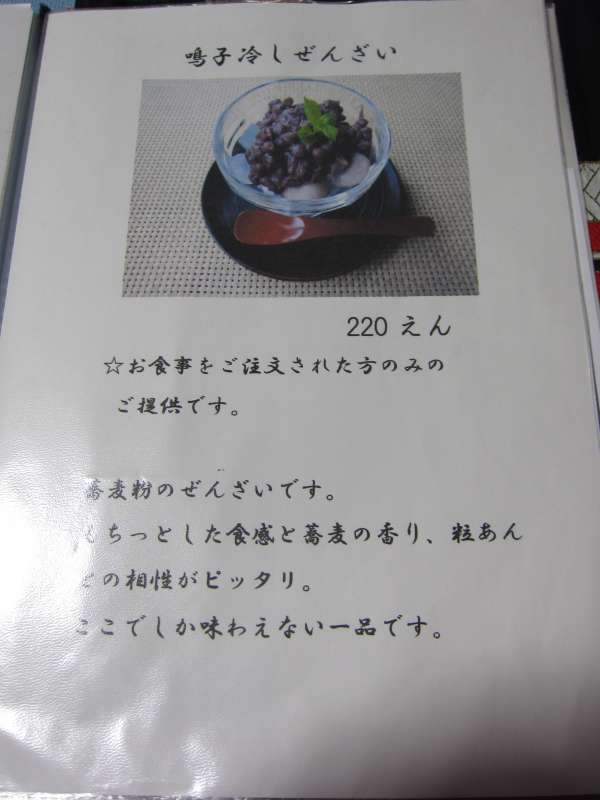 鳴子冷しぜんざい
220 えん
☆お食事をご注文された方のみの
ご提供です。
蕎麦粉のぜんざいです。
もちっとした食感と蕎麦の香り、粒あん
との相性がピッタリ。
ここでしか味わえない一品です。